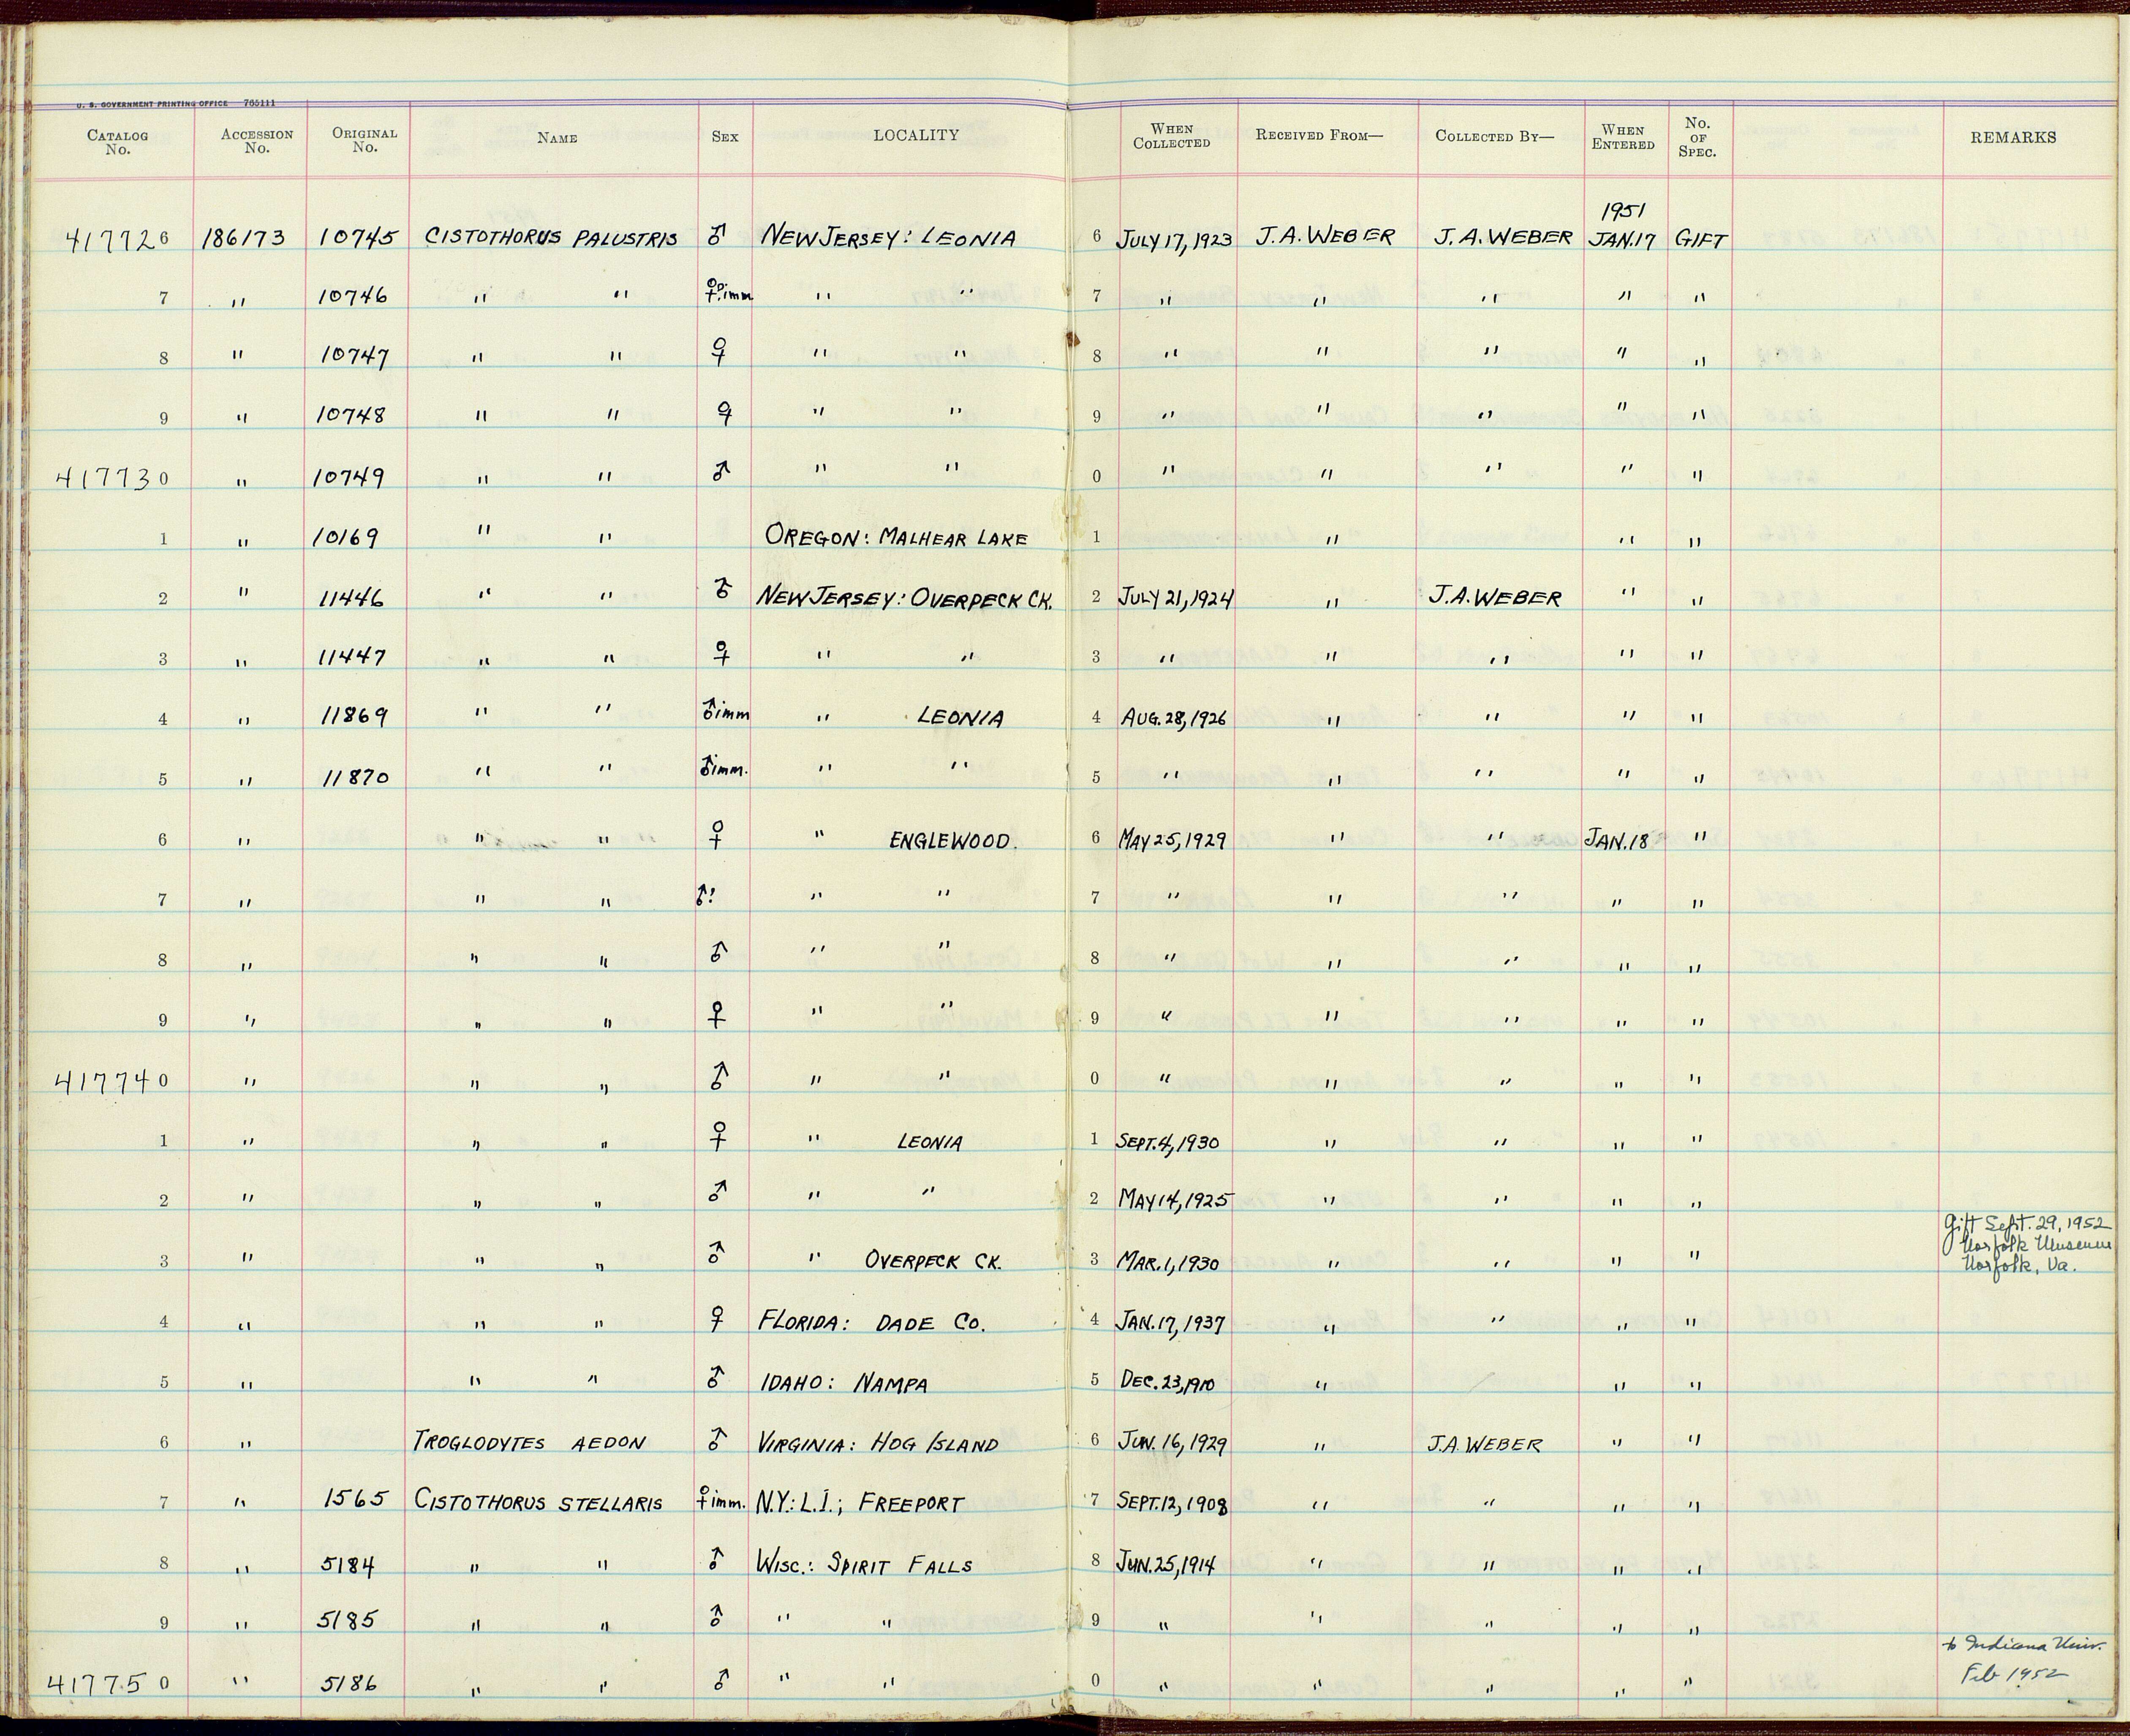 U. S. GOVERNMENT PRINTING OFFICE 765111
CATALOG No. ACCESSION No. ORIGINAL No. NAME SEX LOCALITY WHEN COLLECTED RECEIVED FROM— COLLECTED BY— WHEN ENTERED No. OF SPEC. REMARKS
1951
417726 186173 10745 CISTOTHORUS PALUSTRIS ♂ NEW JERSEY: LEONIA 6 JULY 17, 1923 J.A. WEBER J.A. WEBER JAN. 17 GIFT
7 " 10746 " " ♀ imm " " 7 " " " " "
8 " 10747 " " ♀ " " 8 " " " " "
9 " 10748 " " ♀ " " 9 " " " " "
417730 " 10749 " " ♂ " " 0 " " " " "
1 " 10169 " " OREGON: MALHEAR LAKE 1 " " "
2 " 11446 " " ♂ NEW JERSEY: OVERPECK CK. 2 JULY 21, 1924 " J.A. WEBER " "
3 " 11447 " " ♀ " " 3 " " " " "
4 " 11869 " " ♂ imm " LEONIA 4 AUG. 28, 1926 " " " "
5 " 11870 " " ♂ imm. " " 5 " " " " "
6 " " " ♀ " ENGLEWOOD. 6 MAY 25, 1929 " " JAN. 18 "
7 " " " ♂! " " 7 " " " " "
8 " " " ♂ " " 8 " " " " "
9 " " " ♀ " " 9 " " " " "
417740 " " " ♂ " " 0 " " " " "
1 " " " ♀ " LEONIA 1 SEPT. 4, 1930 " " " "
2 " " " ♂ " " 2 MAY 14, 1925 " " " "
3 " " " ♂ " OVERPECK CK. 3 MAR. 1, 1930 " " " " Gift Sept. 29, 1952
Norfolk Museum
Norfolk, Va.
4 " " " ♀ FLORIDA: DADE CO. 4 JAN. 17, 1937 " " " "
5 " " " ♂ IDAHO: NAMPA 5 DEC. 23, 1910 " " "
6 " TROGLODYTES AEDON ♂ VIRGINIA: HOG ISLAND 6 JUN. 16, 1929 " J.A. WEBER " "
7 " 1565 CISTOTHORUS STELLARIS ♀ imm. N.Y.: L.I.; FREEPORT 7 SEPT. 12, 1908 " " " "
8 " 5184 " " ♂ WISC.: SPIRIT FALLS 8 JUN. 25, 1914 " " " "
9 " 5185 " " ♂ " " 9 " " " " "
417750 " 5186 " " ♂ " " 0 " " " " " to Indiana Univ.
Feb 1952